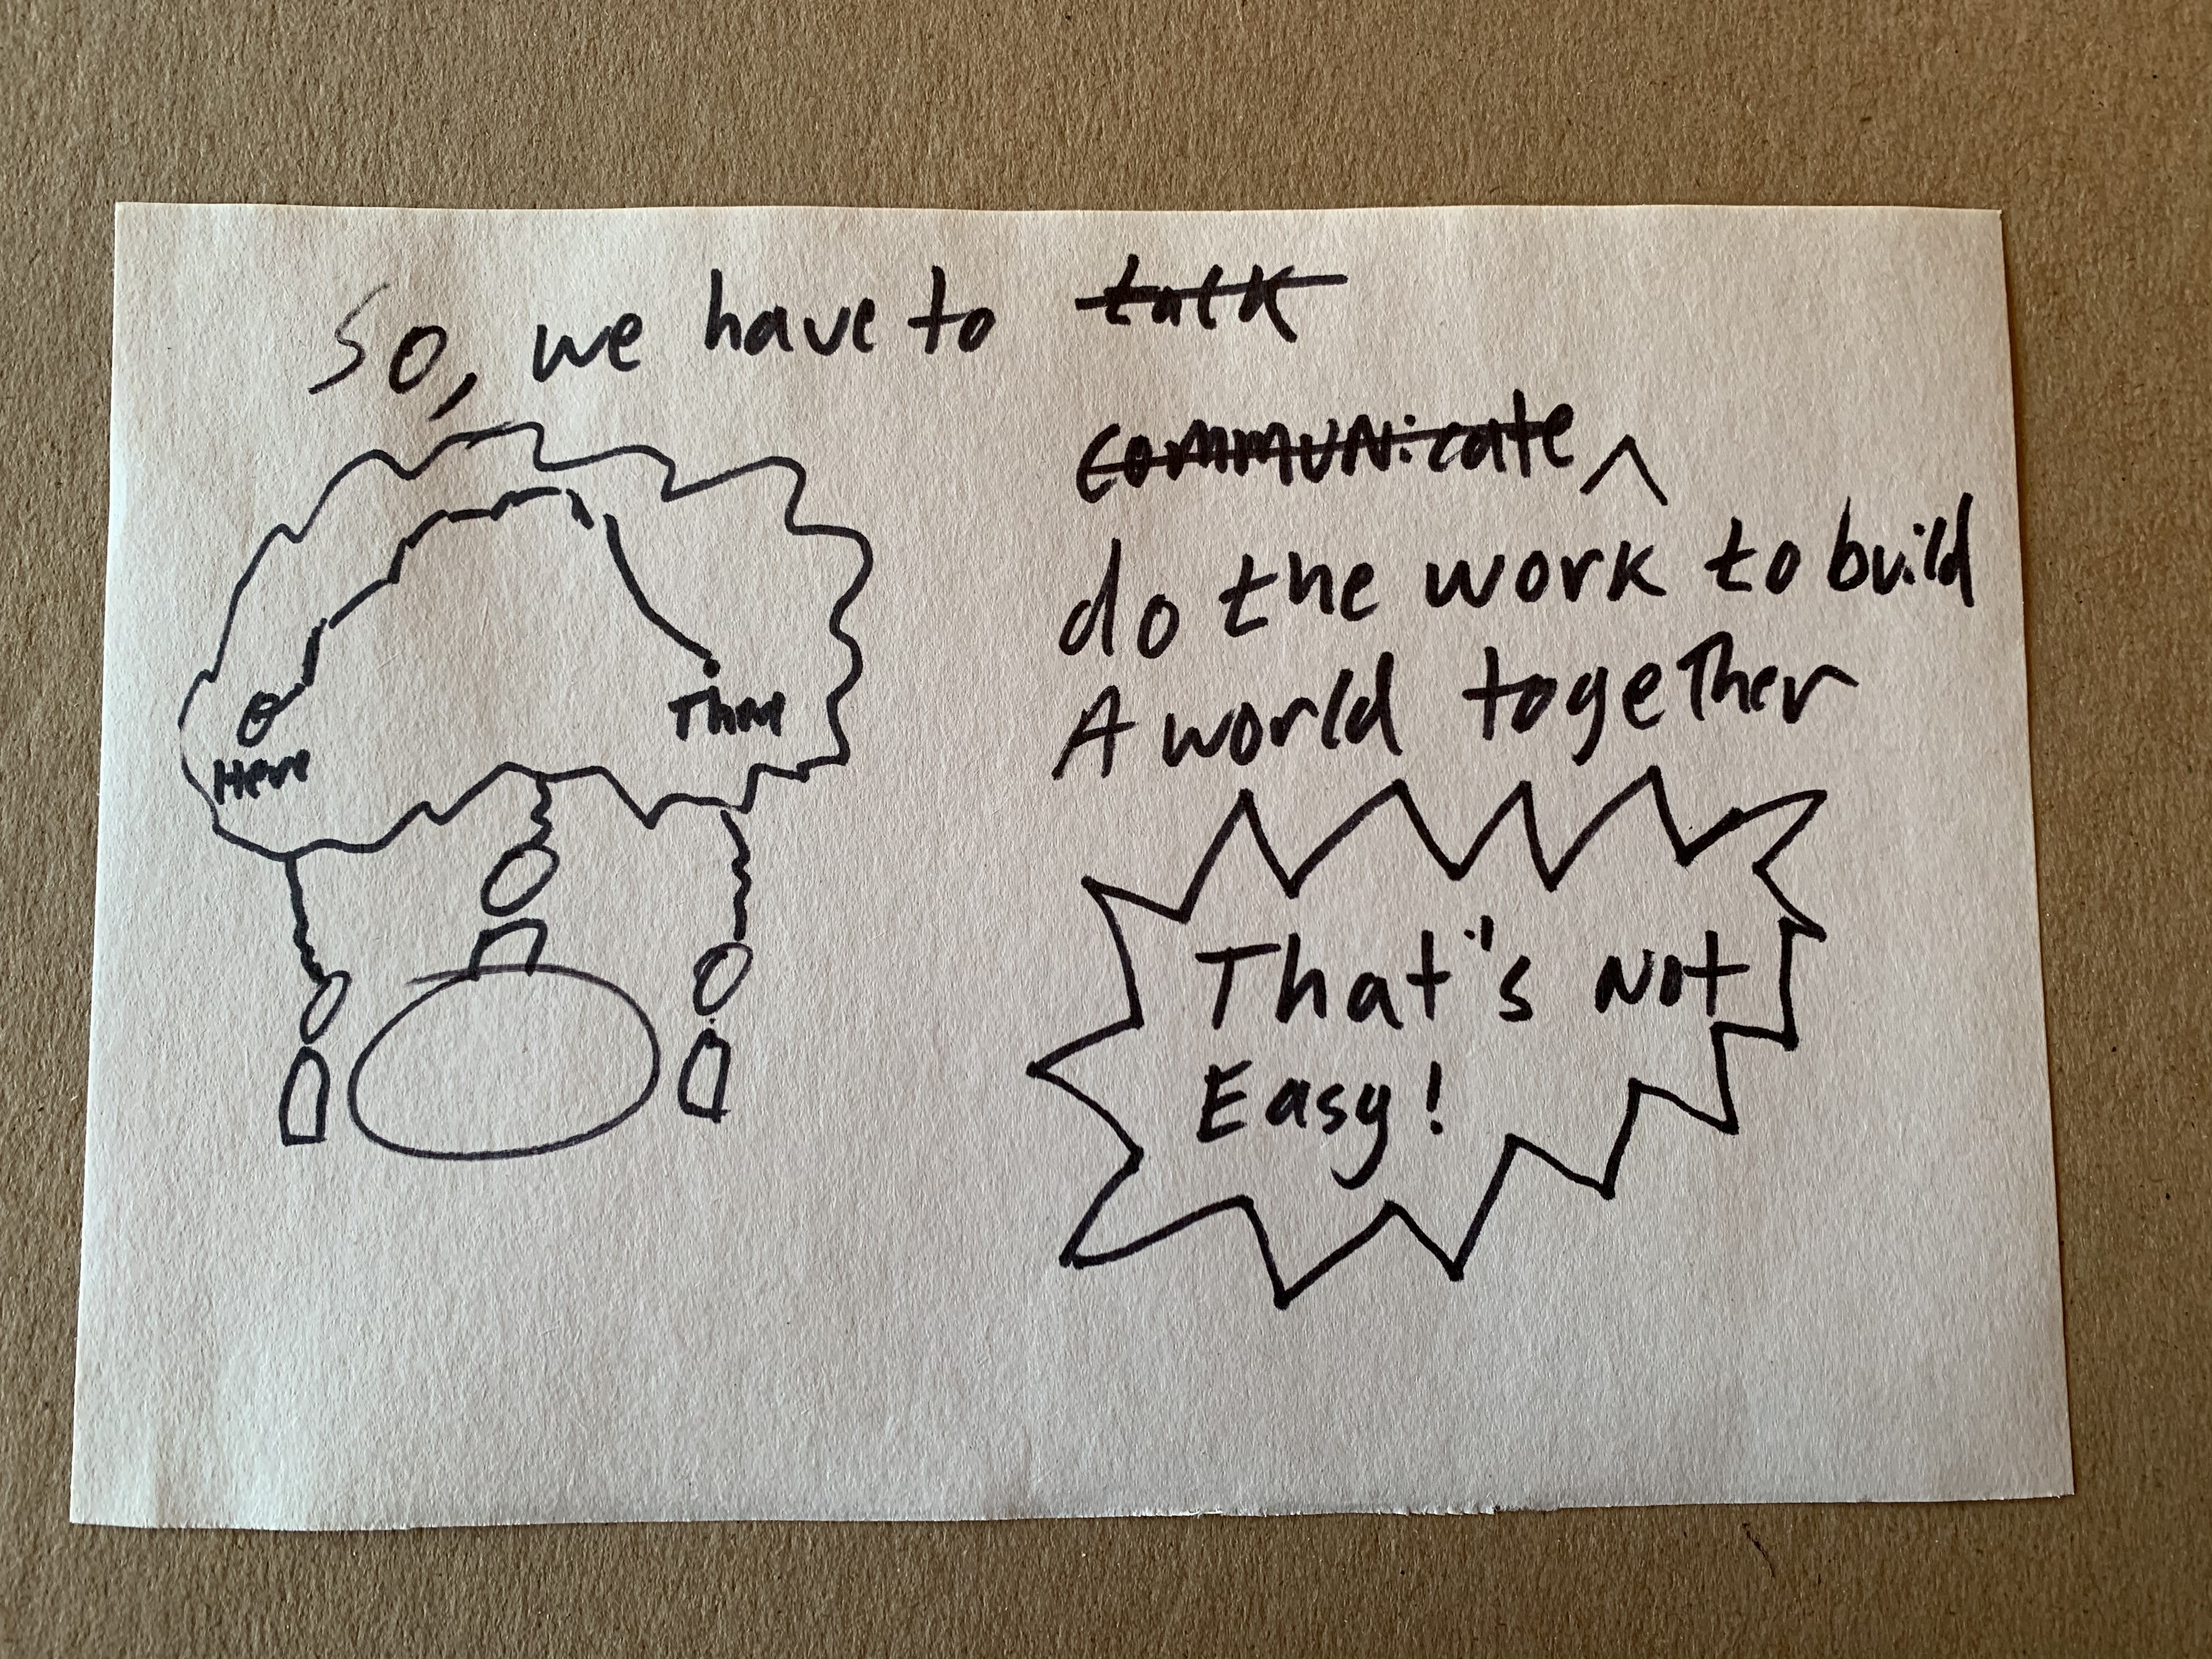 So, we have to talk
communicate ^
do the work to build
A world together
Here
There
That's Not
Easy!